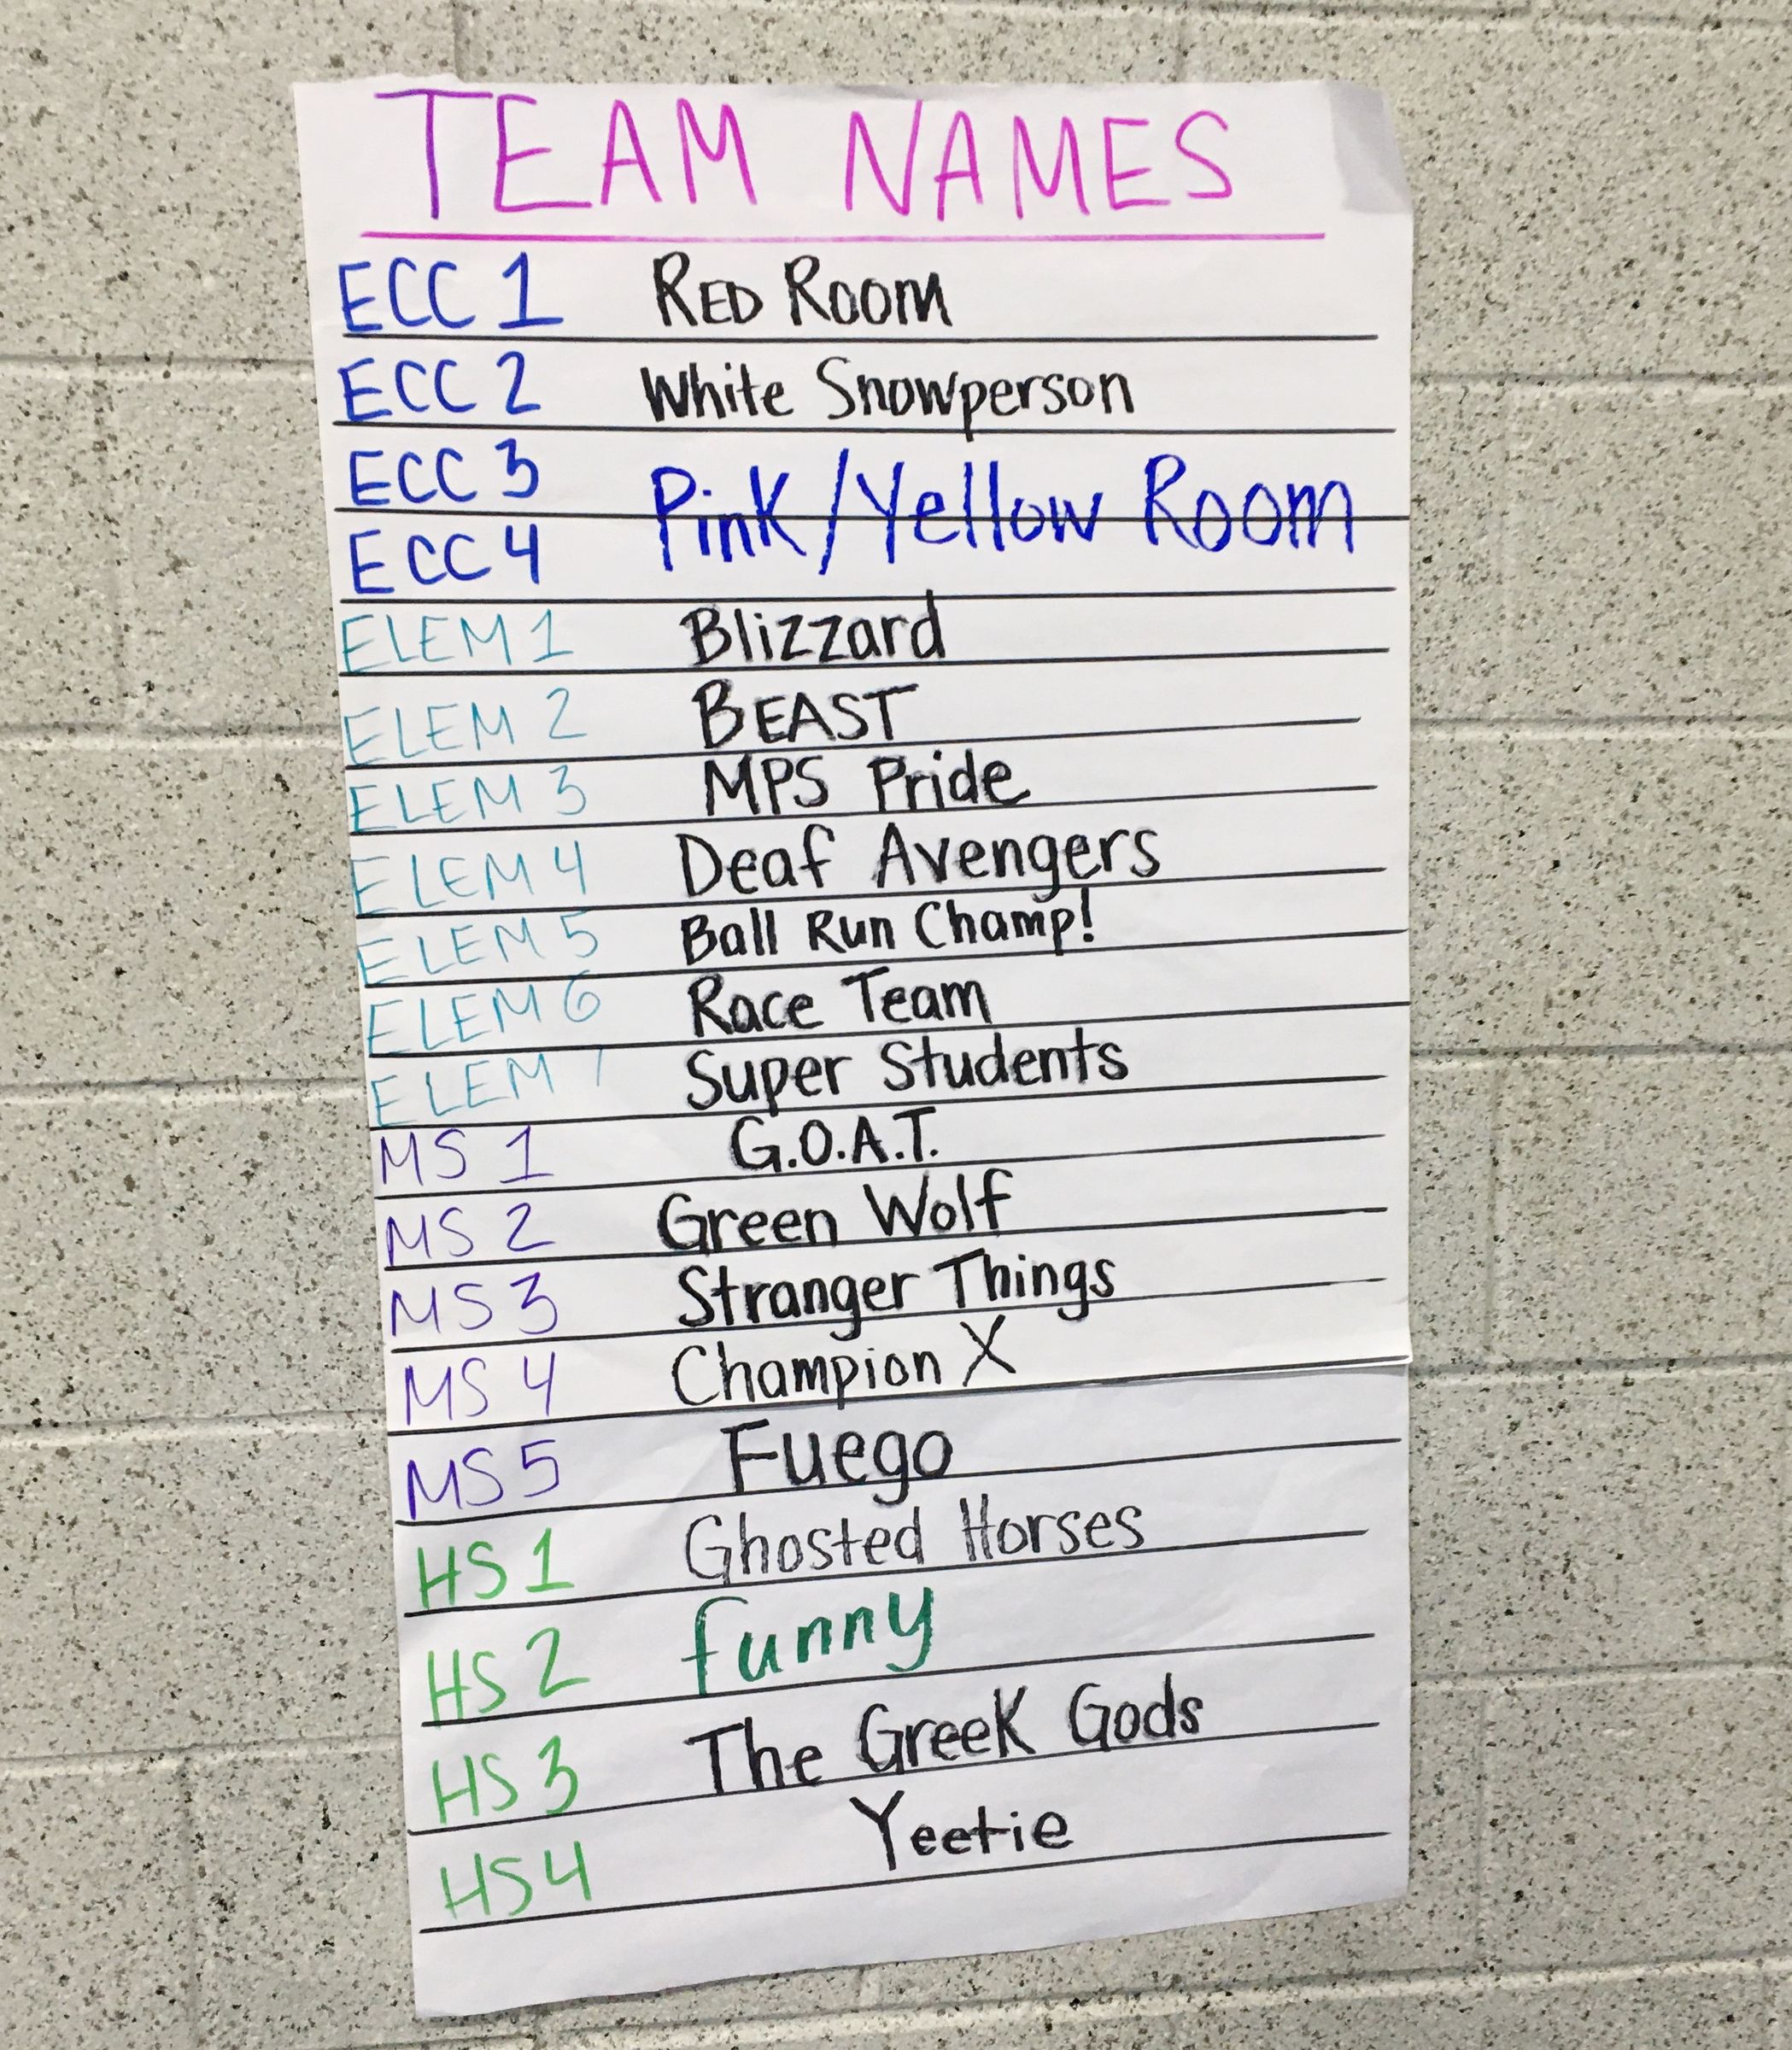 TEAM NAMES
ECC 1 RED ROOM
ECC 2 White Snowperson
ECC 3 Pink/Yellow Room
ECC 4
ELEM 1 Blizzard
ELEM 2 BEAST
ELEM 3 MPS Pride
ELEM 4 Deaf Avengers
ELEM 5 Ball Run Champ!
ELEM 6 Race Team
ELEM 7 Super Students
MS 1 G.O.A.T.
MS 2 Green Wolf
MS 3 Stranger Things
MS 4 Champion X
MS 5 Fuego
HS 1 Ghosted Horses
HS 2 funny
HS 3 The Greek Gods
HS 4 Yeetie